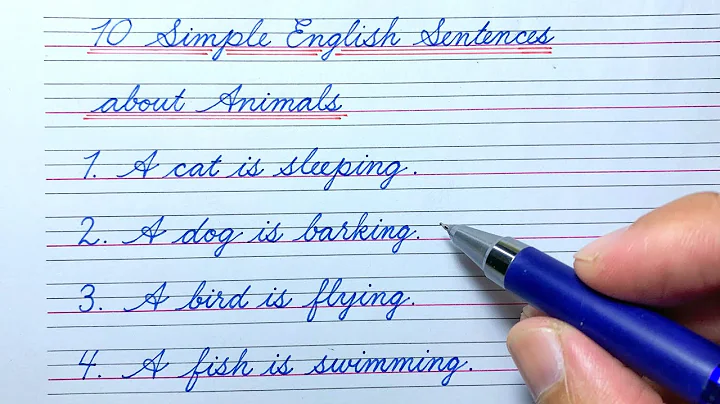 10 Simple English Sentences
about Animals
1. A cat is sleeping.
2. A dog is barking.
3. A bird is flying.
4. A fish is swimming.